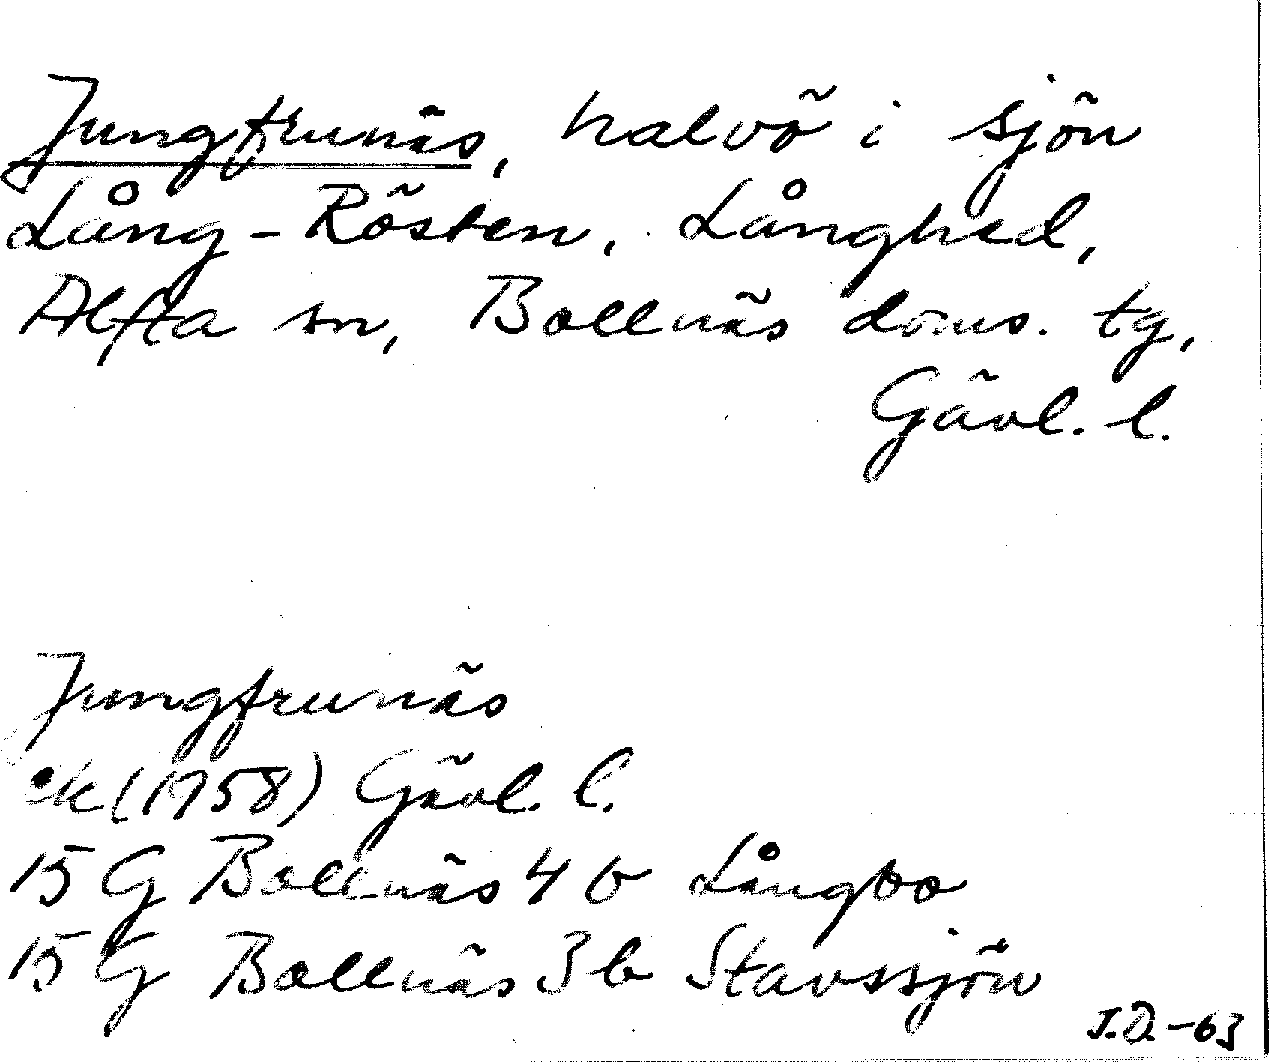 Jungfrunäs, halvö i sjön
Lång-Rösten, Långhed,
Alfta sn, Bollnäs doms. tg,
Gävl. l.
Jungfrunäs
ek (1958) Gävl. l.
15 G Bollnäs 4 b Långbo
15 G Bollnäs 3 b Stavssjön
J.D.-63